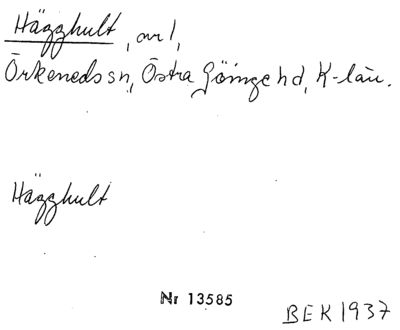 Hägghult, avl,
Örkeneds sn, Östra Göinge hd, K-län.
Hägghult
Nr 13585
BEK 1937